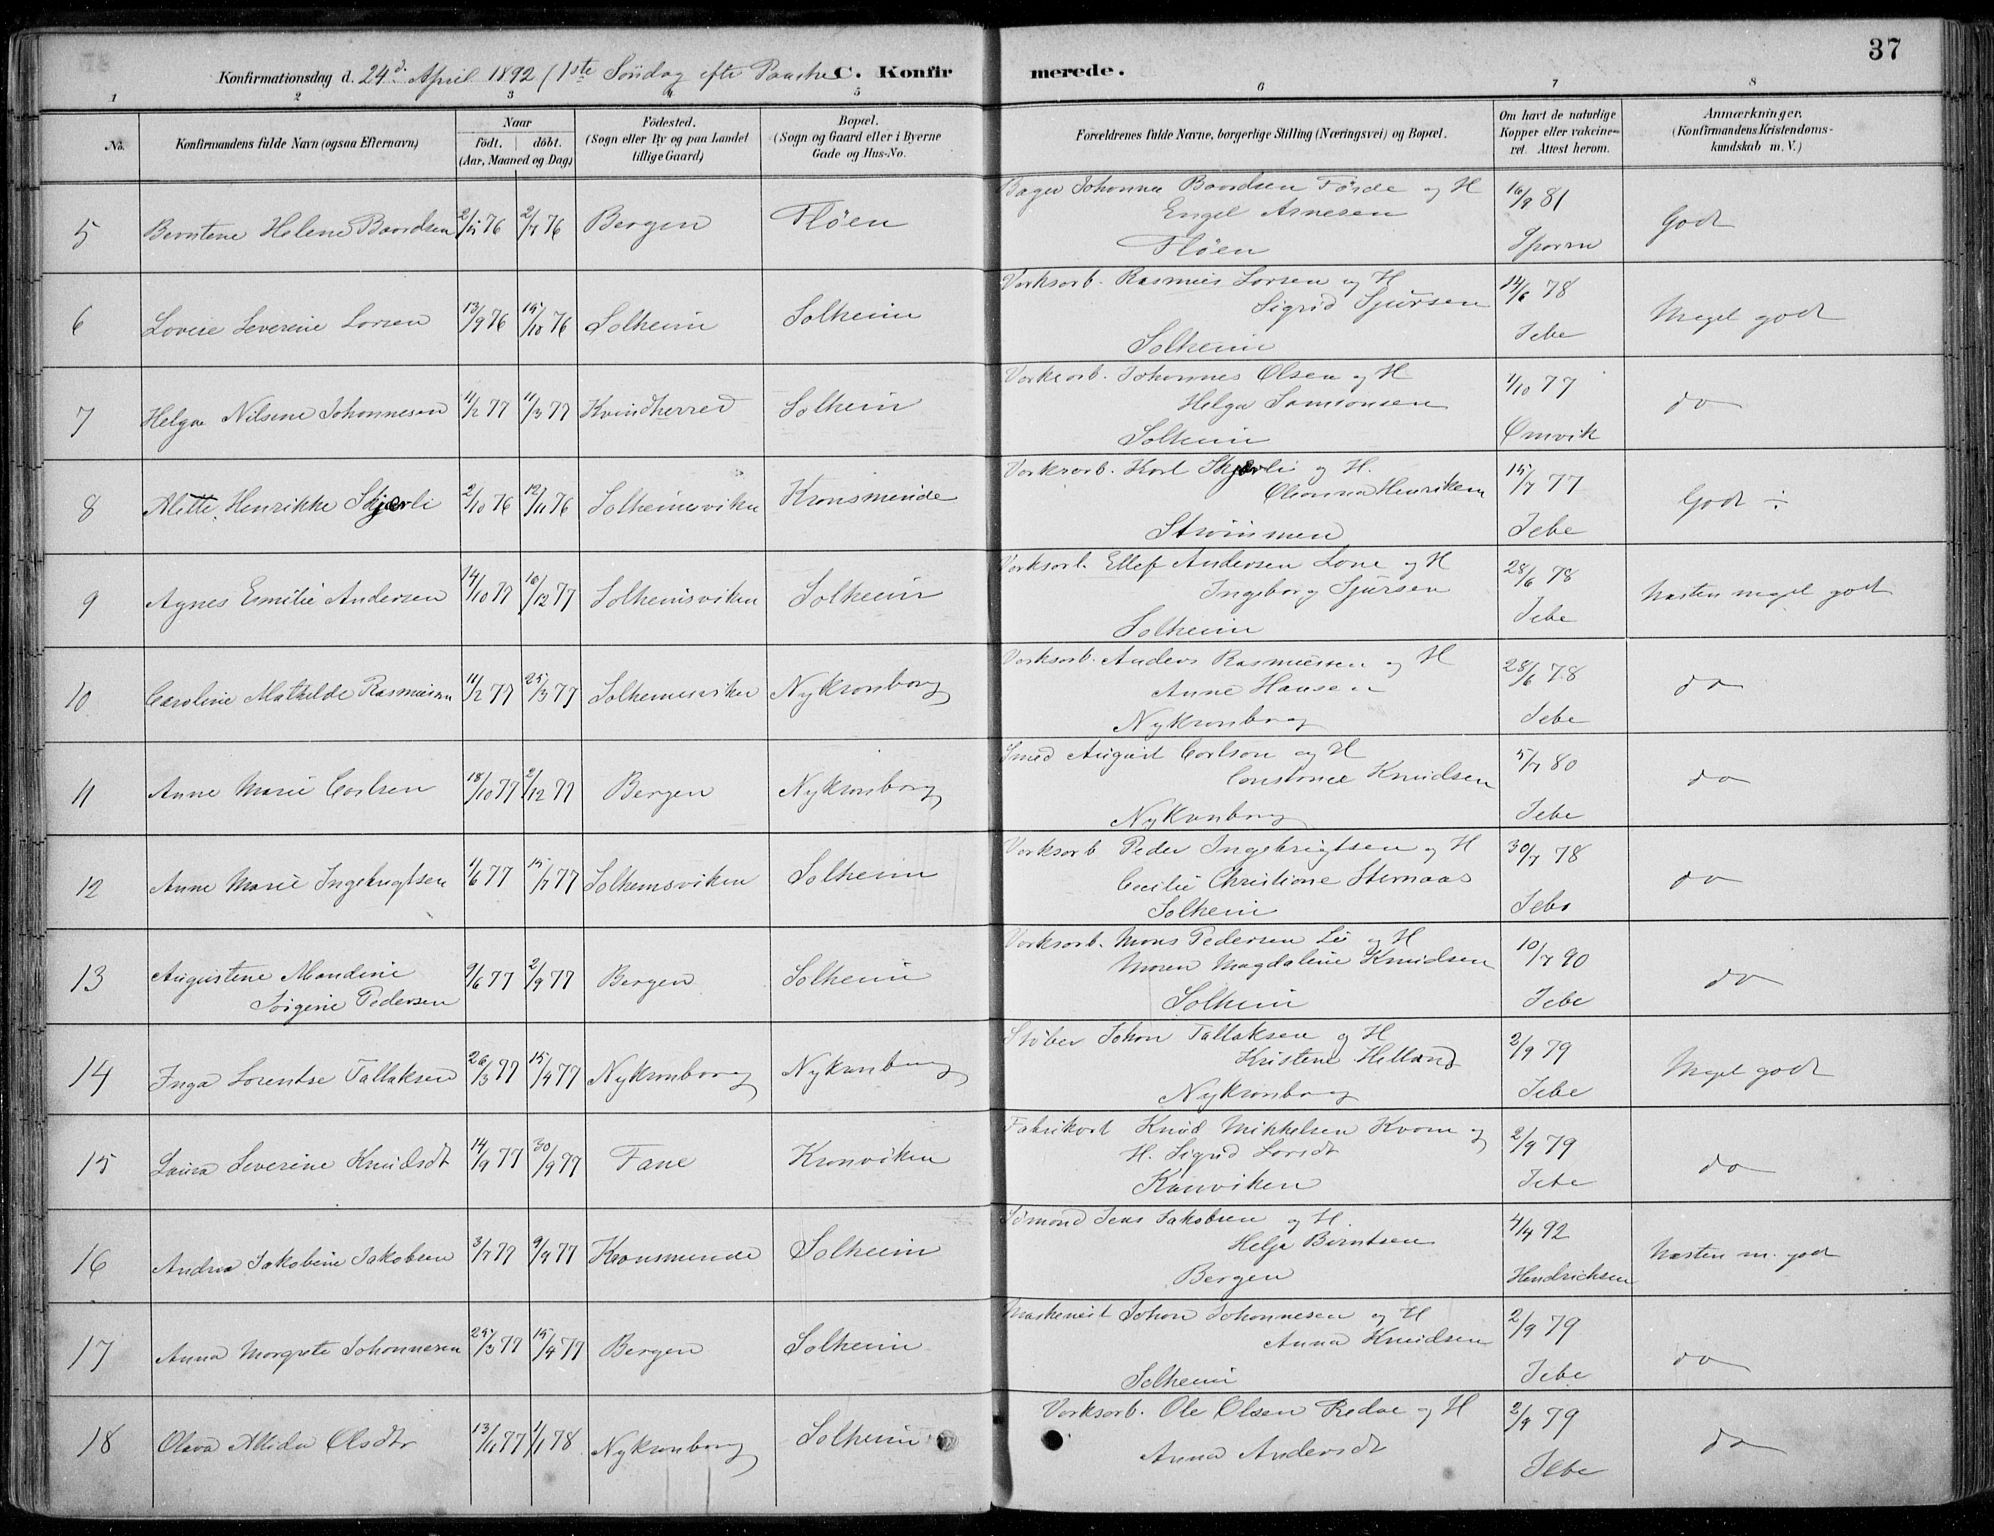 37
Konfirmationsdag d. 24d. April 1892 (1ste Söndag efter Paaske C. Konfirmerede.
1 2 3 4 5 6 7 8
No. Konfirmandens fulde Navn (ogsaa Efternavn) Naar födt. döbt. (Aar, Maaned og Dag) Födested. (Sogn eller By og paa Landet tillige Gaard) Bopæl. (Sogn og Gaard eller i Byerne Gade og Hus-No. Forældrenes fulde Navne, borgerlige Stilling (Næringsvei) og Bopæl. Om havt de naturlige Kopper eller vakcineret. Attest herom. Anmærkninger. (Konfirmandens Kristendomskundskab m. V.)
5 Berntene Helene Baardsen 76 2/7 76 Bergen Fløen
Bager Johannes Baardsen Førde og H
Engel Arnesen
Fløen
16/9 81
Sparre
Godt
6 Lovise Severine Larsen 13/9 76 15/10 76 Solheim Solheim
Verksarb. Rasmus Larsen og H
Sigrid Sjursen
Solheim
14/6 78
Jebe
Meget godt
7 Helga Nilsine Johannesen 11/2 77 11/3 77 Kvindherred Solheim
Verksarb. Johannes Olsen og H
Helga Samsonsen
Solheim
1/10 77
Omvik
do
8 Alette Henrikke Skjærli 2/10 76 12/11 76 Solheimsviken Kronsminde
Verksarb. Karl Skjærli og H.
Oleanna Henriksen
Strømmen
15/7 77
Jebe
Godt ÷
9 Agnes Emilie Andersen 14/10 77 16/12 77 Solheimsviken Solheim
Verksarb. Ellef Andersen Lone og H
Ingeborg Sjursen
Solheim
28/6 78
Jebe
Næsten meget godt
10 Caroline Mathilde Rasmussen 11/2 77 25/3 77 Solheimsviken Nykronborg
Verksarb. Anders Rasmussen og H
Anne Hansen
Nykronborg
28/6 78
Jebe
do
11 Anne Marie Carlsen 18/10 77 2/12 77 Bergen Nykronborg
Smed August Carlson og H
Constance Knudsen
Nykronborg
5/7 80
Jebe
do
12 Anne Marie Ingebrigtsen 1/6 77 15/7 77 Solheimsviken Solheim
Verksarb Peder Ingebrigtsen og H
Cecilie Christiane Sternaas
Solheim
30/7 78
Jebe
do
13 Augustene Mandine
Jørgine Pedersen 9/6 77 2/9 77 Bergen Solheim
Verksarb. Mons Pedersen Li og H
Maren Magdaline Knudsen
Solheim
10/7 90
Jebe
do
14 Inga Lorentse Tallaksen 26/3 77 15/4 77 Nykronborg Nykronborg
Støber Johan Tallaksen og H
Kristene Helland
Nykronborg
2/9 79
Jebe
Meget godt
15 Laura Severine Knudsdt 14/9 77 30/9 77 Fane Kronviken
Fabrikarb Knud Mikkelsen Kvam og
H. Sigrid Larsdt
Kronviken
2/9 79
Jebe
do
16 Andrea Jakobine Jakobsen 3/7 77 9/9 77 Kronsminde Solheim
Sømand Jens Jakobsen og H.
Helje Berntsen
Bergen
4/4 92
Hendrichsen
Næsten m. godt
17 Anna Margrete Johannesen 25/3 77 15/4 77 Bergen Solheim
Maskinist Johan Johannesen og H
Anna Knudsen
Solheim
2/9 79
Jebe
do
18 Olava Alida Olsdtr 13/11 77 1/1 78 Nykronborg Solheim
Verksarb. Ole Olsen Redae og H
Anna Andersdt
2/9 79
Jebe
do